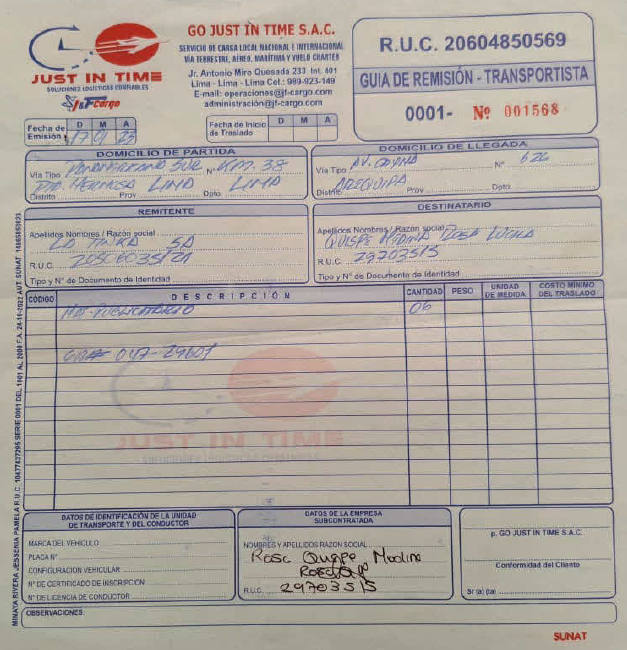 JUST IN TIME
SOLUCIONES LOGÍSTICAS CONFIABLES
J&F cargo
GO JUST IN TIME S.A.C.
SERVICIO DE CARGA LOCAL NACIONAL E INTERNACIONAL
VÍA TERRESTRE, AÉREO, MARÍTIMA Y VUELO CHARTER
Jr. Antonio Miro Quesada 233 Int. 601
Lima - Lima - Lima Cel.: 989-923-149
E-mail: operaciones@jf-cargo.com
administración@jf-cargo.com
R.U.C. 20604850569
GUIA DE REMISIÓN - TRANSPORTISTA
0001- Nº 001568
Fecha de Emisión D M A
17 01 23
Fecha de Inicio de Traslado D M A
DOMICILIO DE PARTIDA
Vía Tipo Panamericano Sur Nº KM. 38
Pta. Hermosa Lima Lima
Distrito Prov Dpto
DOMICILIO DE LLEGADA
Vía Tipo AV. Nº 626
Distrito Arequipa Prov Dpto
REMITENTE
Apellidos Nombres / Razón social
La Tinka SA
R.U.C. 20506035121
Tipo y Nº de Documento de Identidad
DESTINATARIO
Apellidos Nombres / Razón social
Quispe Medina Rosa Lucila
R.U.C. 29703515
Tipo y Nº de Documento de Identidad
CÓDIGO DESCRIPCIÓN CANTIDAD PESO UNIDAD DE MEDIDA COSTO MÍNIMO DEL TRASLADO
Mat. Publicitario 06
Guia 047-29601
JUST IN TIME
SOLUCIONES LOGÍSTICAS CONFIABLES
DATOS DE IDENTIFICACIÓN DE LA UNIDAD
DE TRANSPORTE Y DEL CONDUCTOR
MARCA DEL VEHICULO
PLACA Nº
CONFIGURACION VEHICULAR
Nº DE CERTIFICADO DE INSCRIPCIÓN
Nº DE LICENCIA DE CONDUCTOR
DATOS DE LA EMPRESA
SUBCONTRATADA
NOMBRES Y APELLIDOS RAZON SOCIAL
Rosa Quispe Medina
R.U.C. 29703515
p. GO JUST IN TIME S.A.C.
Conformidad del Cliente
Sr (a) (ta)
OBSERVACIONES:
SUNAT
MINAYA RIVERA JESSENIA PAMELA R.U.C. 10477437295 SERIE 0001 DEL 1101 AL 2000 F.A. 24-11-2022 AUT. SUNAT